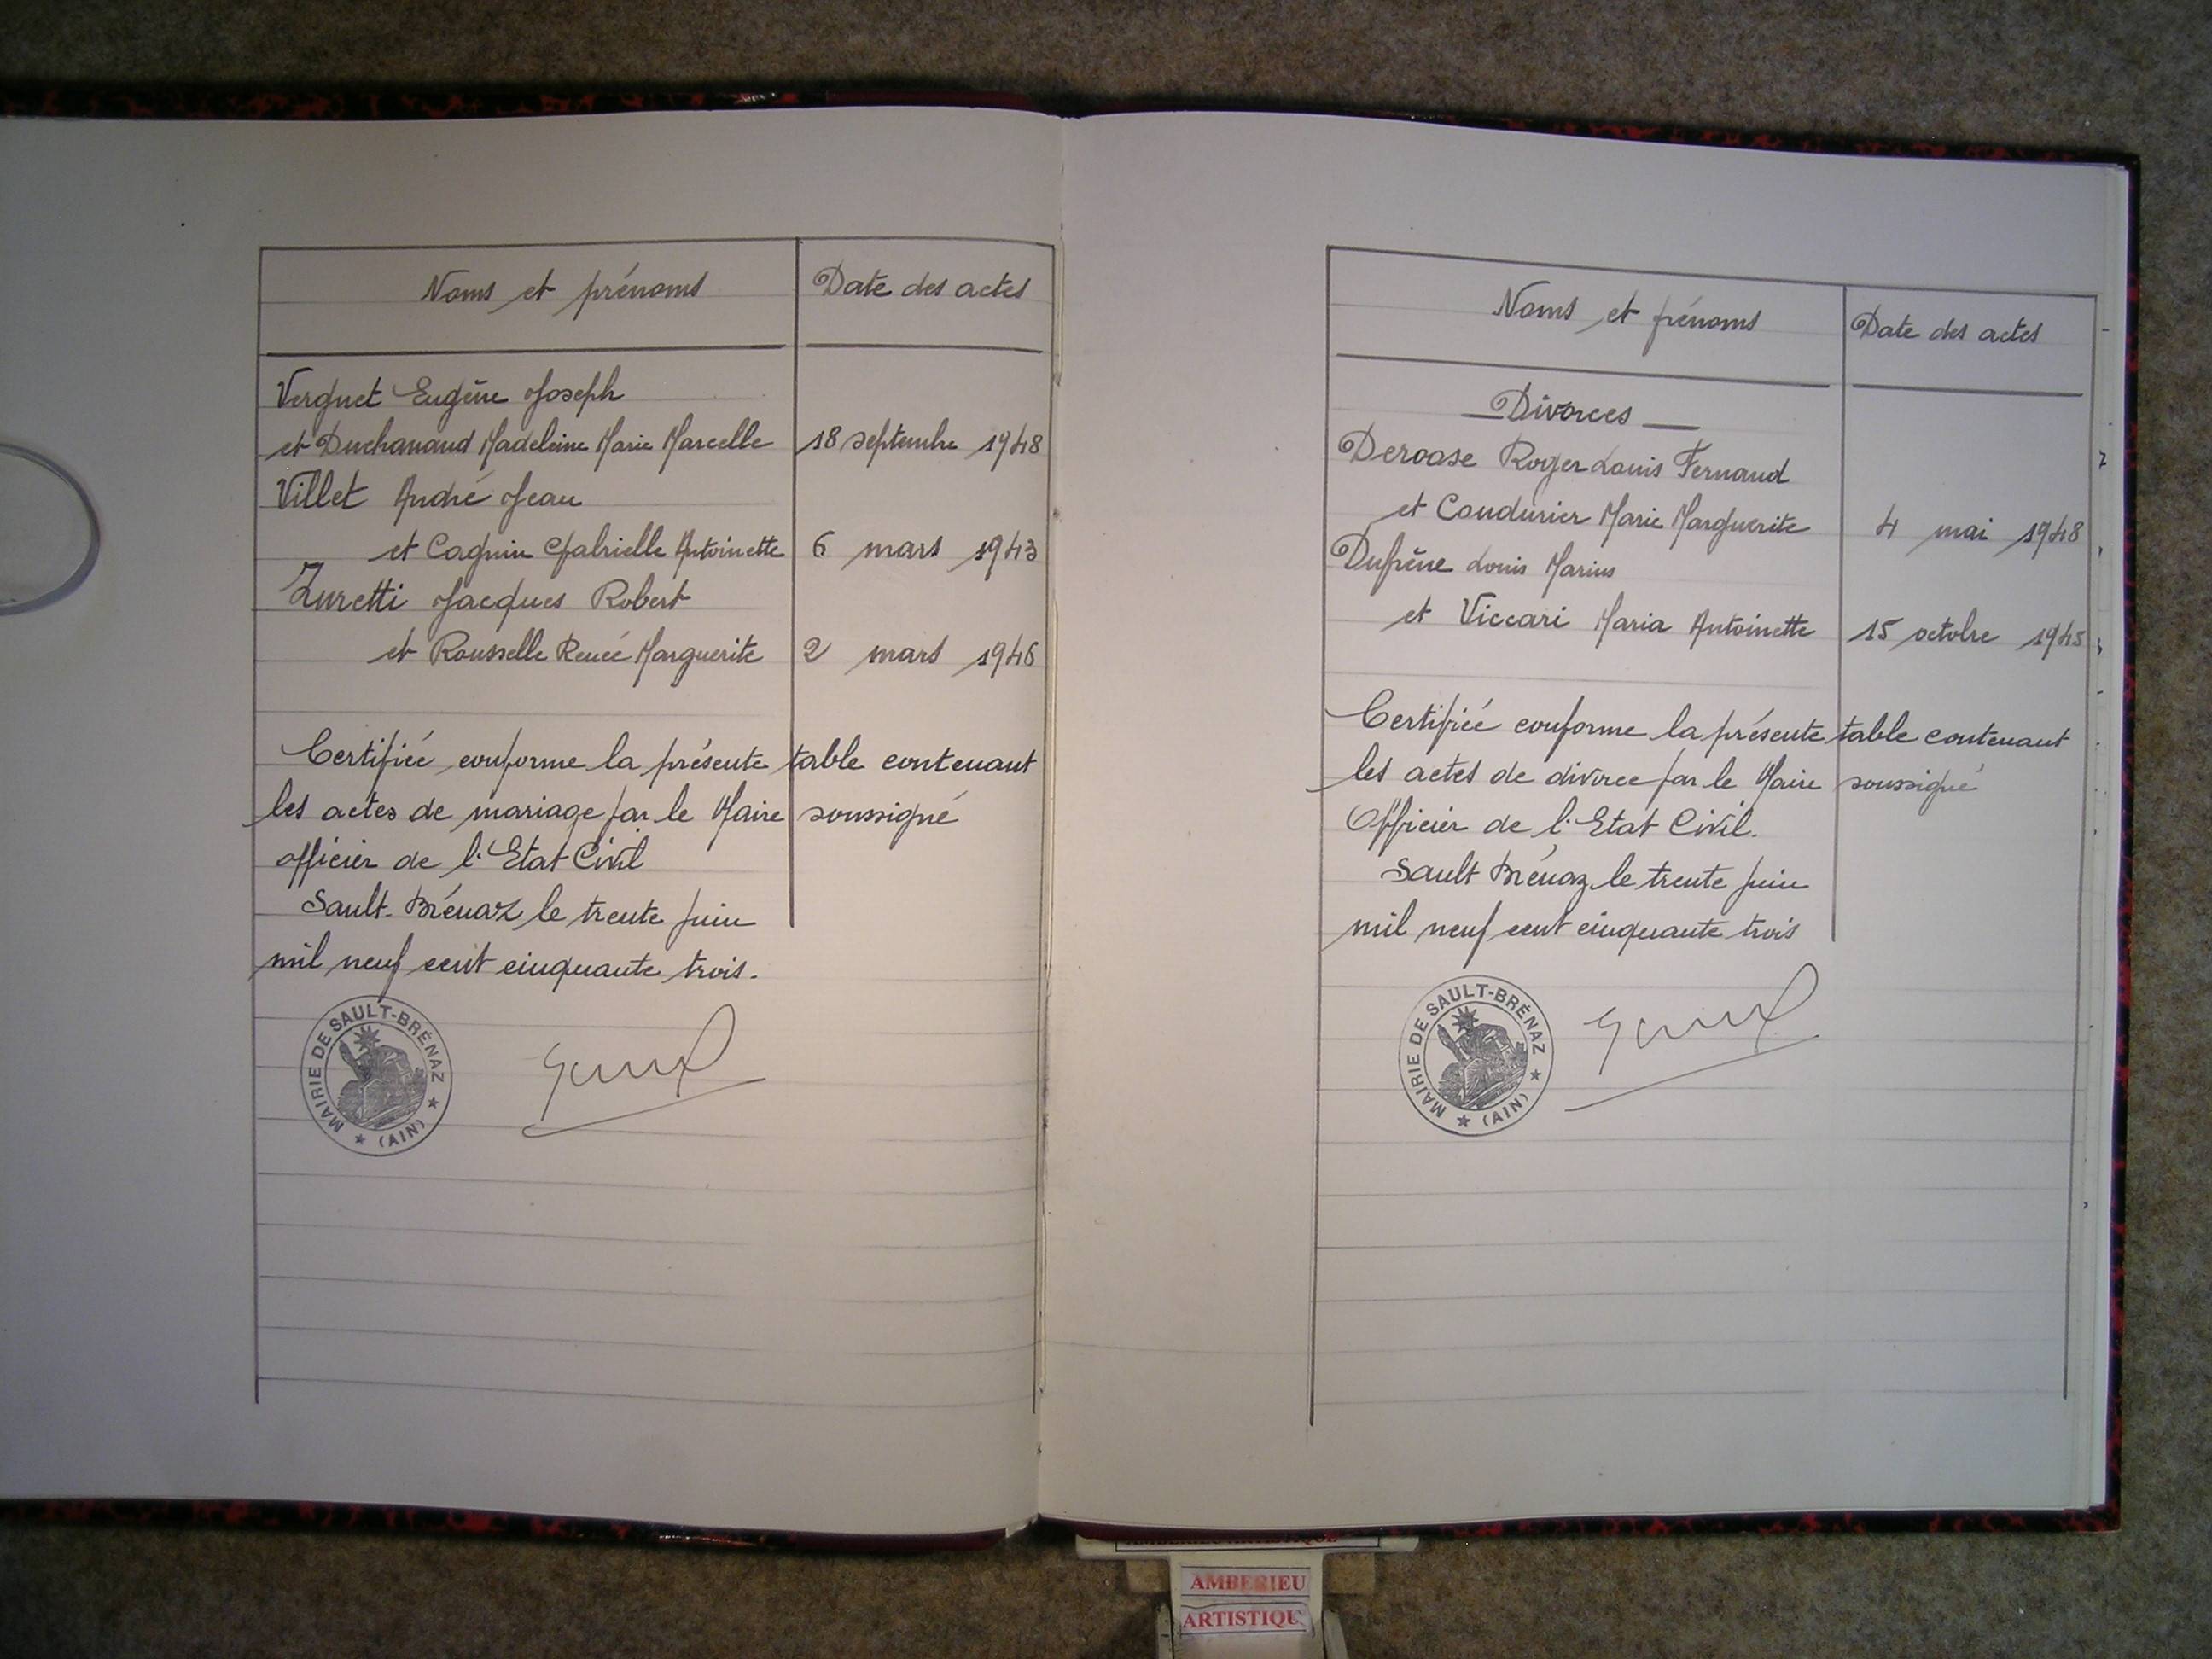 Noms et prénoms
Date des actes
Verguet Eugène Joseph
et Duchanaud Madeleine Marie Marcelle 18 septembre 1948
Villet André Jean
et Cagnin Gabrielle Antoinette 6 mars 1943
Zuretti Jacques Robert
et Rousselle Renée Marguerite 2 mars 1946
Certifiée conforme la présente table contenant
les actes de mariage par le Maire soussigné
officier de l'Etat Civil
Sault-Brénaz le trente juin
mil neuf cent cinquante trois.
MAIRIE DE SAULT-BRÉNAZ
(AIN)
Noms et prénoms
Date des actes
Divorces
Deroose Roger Louis Fernand
et Coudurier Marie Marguerite 4 mai 1948
Dufrêne Louis Marius
et Viccari Maria Antoinette 15 octobre 1945
Certifiée conforme la présente table contenant
les actes de divorce par le Maire soussigné
Officier de l'Etat Civil.
Sault Brénaz le trente juin
mil neuf cent cinquante trois
MAIRIE DE SAULT-BRÉNAZ
(AIN)
AMBERIEU
ARTISTIQU